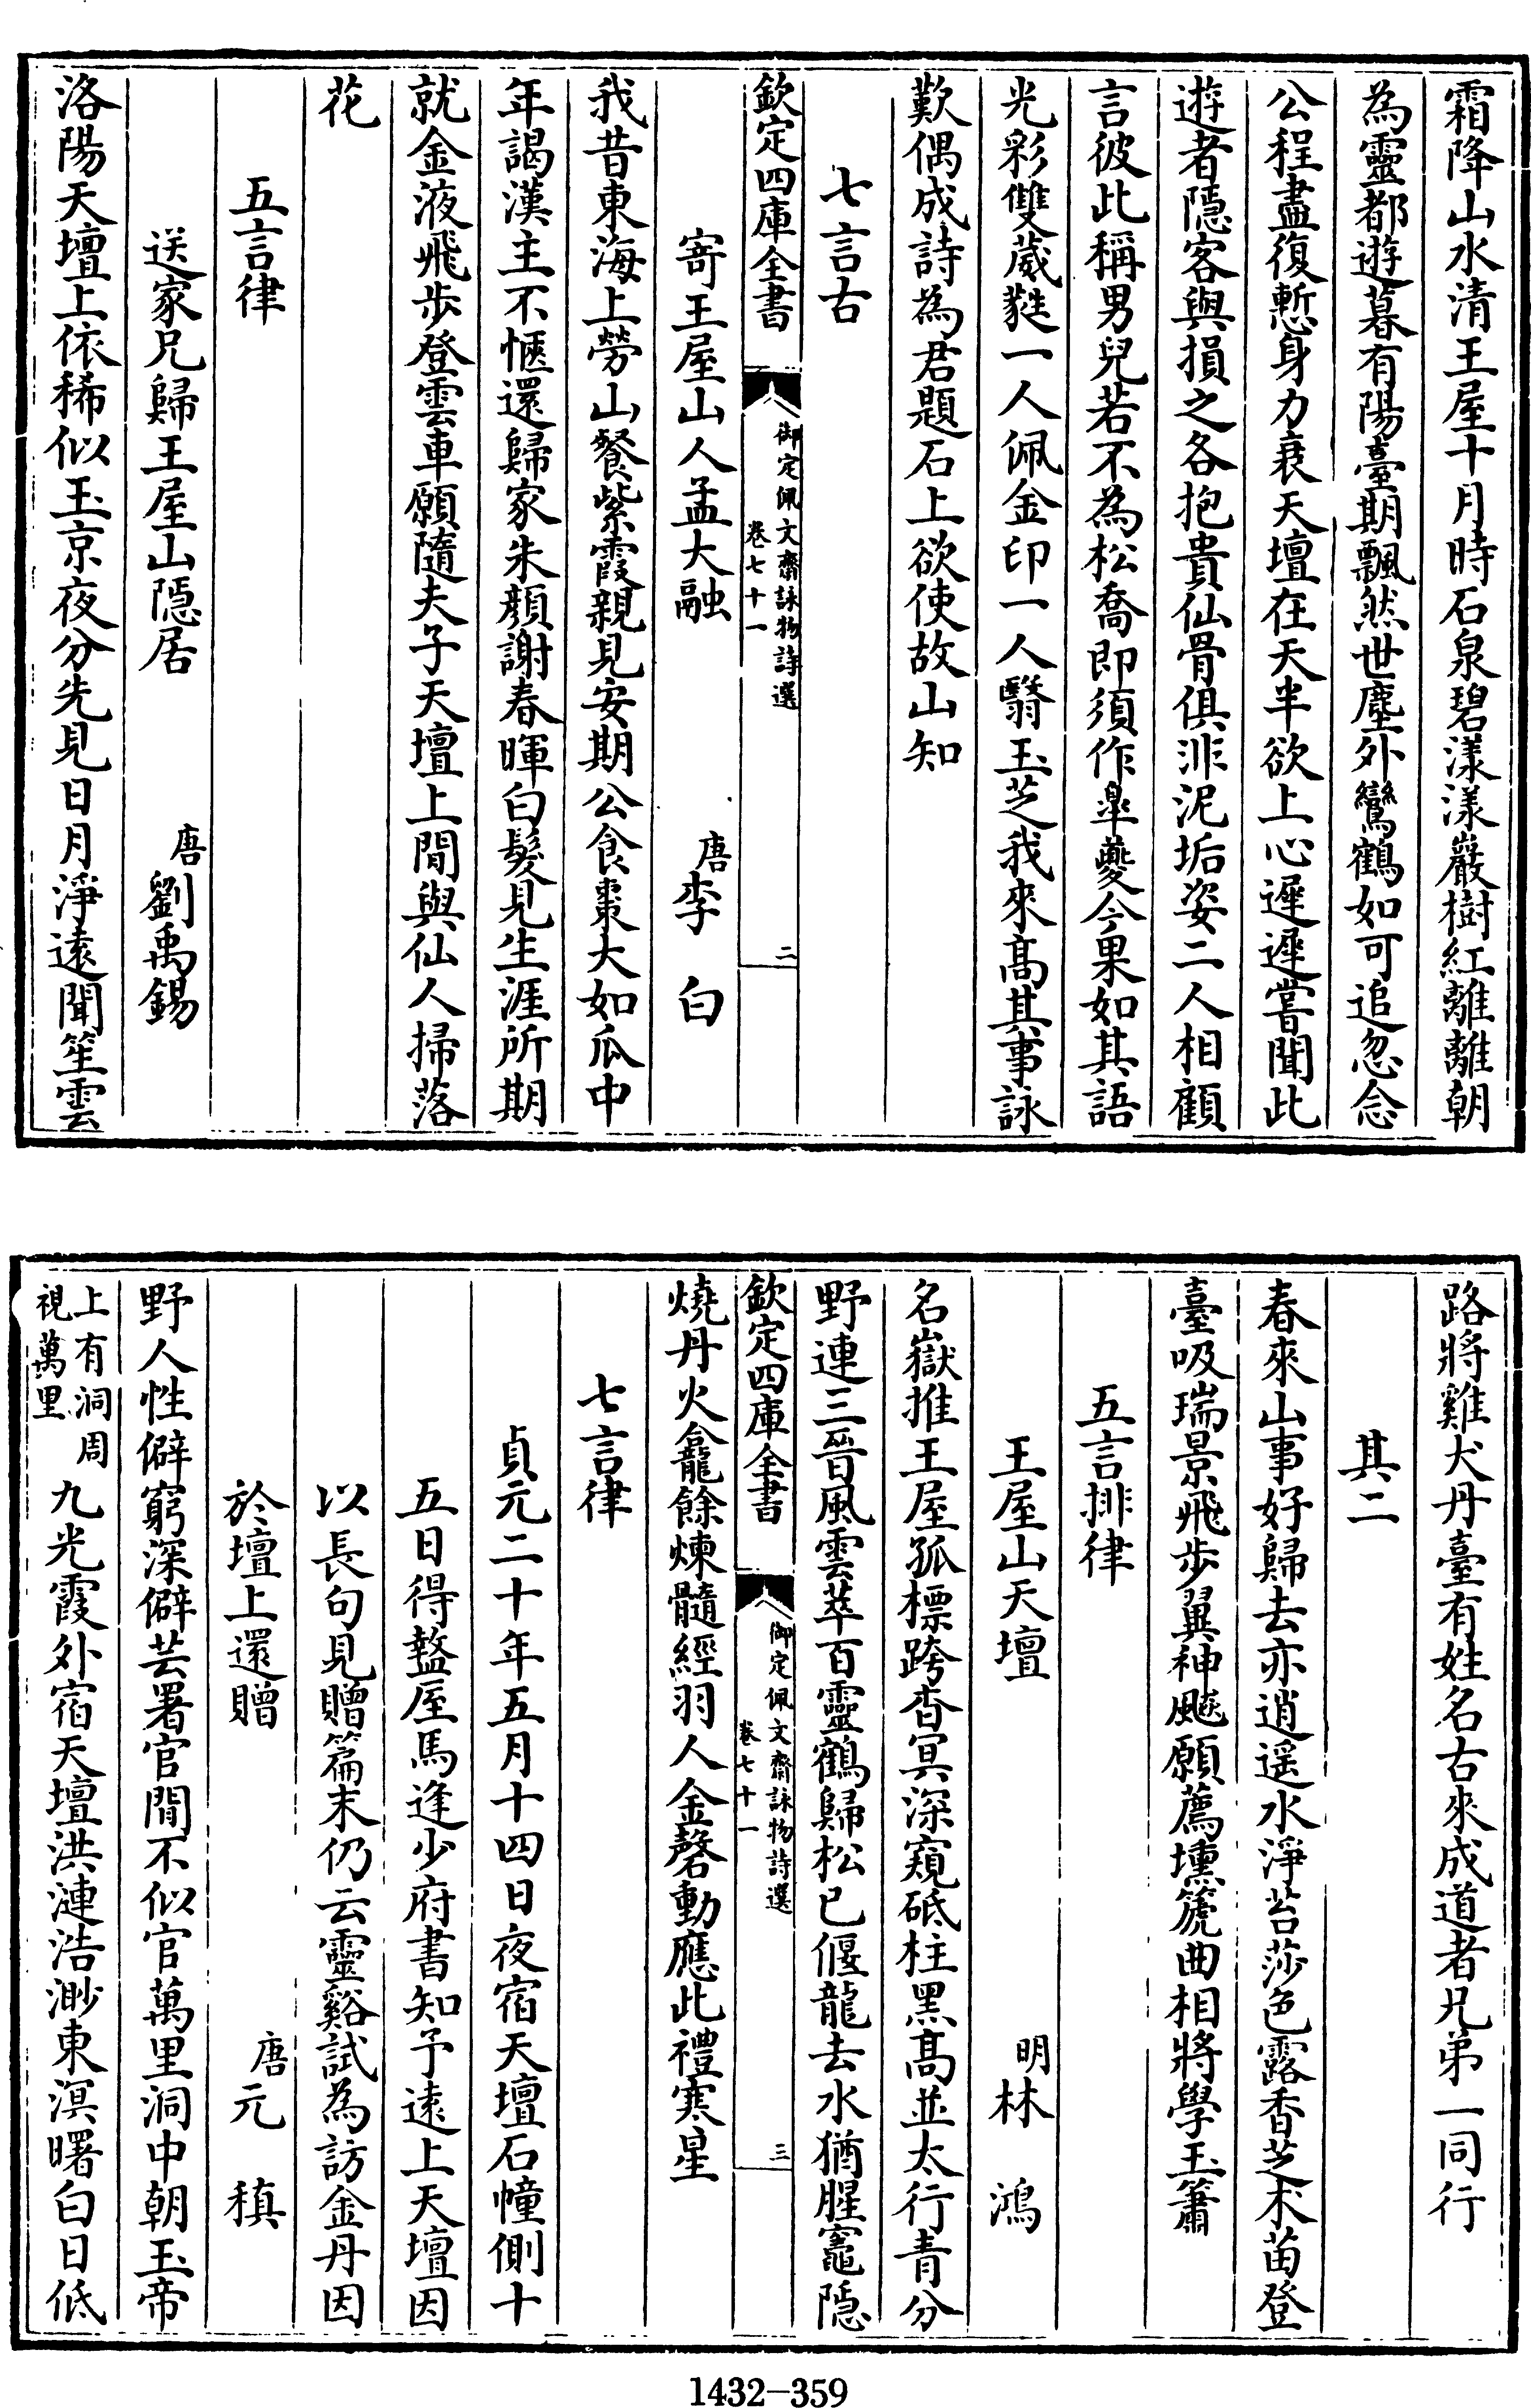 霜降山水清王屋十月時石泉碧漾漾巖樹紅離離朝
為靈都遊暮有陽臺期飄然世塵外鸞鶴如可追忽念
公程盡復慙身力衰天壇在天半欲上心遲遲嘗聞此
遊者隱客與損之各抱貴仙骨俱非泥垢姿二人相顧
言彼此稱男兒若不為松喬即須作臯夔今果如其語
光彩雙葳蕤一人佩金印一人翳玉芝我來高其事詠
歎偶成詩為君題石上欲使故山知
七言古
欽定四庫全書
御定佩文齋詠物詩選
卷七十一
二
寄王屋山人孟大融
唐李白
我昔東海上勞山餐紫霞親見安期公食棗大如瓜中
年謁漢主不愜還歸家朱顏謝春暉白髮見生涯所期
就金液飛步登雲車願隨夫子天壇上閒與仙人掃落
花
五言律
送家兄歸王屋山隱居
唐劉禹錫
洛陽天壇上依稀似玉京夜分先見日月淨遠聞笙雲
路將雞犬丹臺有姓名古來成道者兄弟一同行
其二
春來山事好歸去亦逍遥水淨苔莎色露香芝朮苗登
臺吸瑞景飛步翼神飈願薦壎篪曲相將學玉簫
五言排律
王屋山天壇
明林鴻
名嶽推王屋孤標跨杳冥深窺砥柱黑高並太行青分
野連三晉風雲萃百靈鶴歸松已偃龍去水猶腥竈隱
欽定四庫全書
御定佩文齋詠物詩選
卷七十一
三
燒丹火龕餘煉髓經羽人金磬動應此禮寒星
七言律
貞元二十年五月十四日夜宿天壇石幢側十
五日得盩厔馬逢少府書知予遠上天壇因
以長句見贈篇末仍云靈谿試為訪金丹因
於壇上還贈
唐元稹
野人性僻窮深僻芸署官閒不似官萬里洞中朝玉帝
上有洞周
視萬里
九光霞外宿天壇洪漣浩渺東溟曙白日低
1432-359